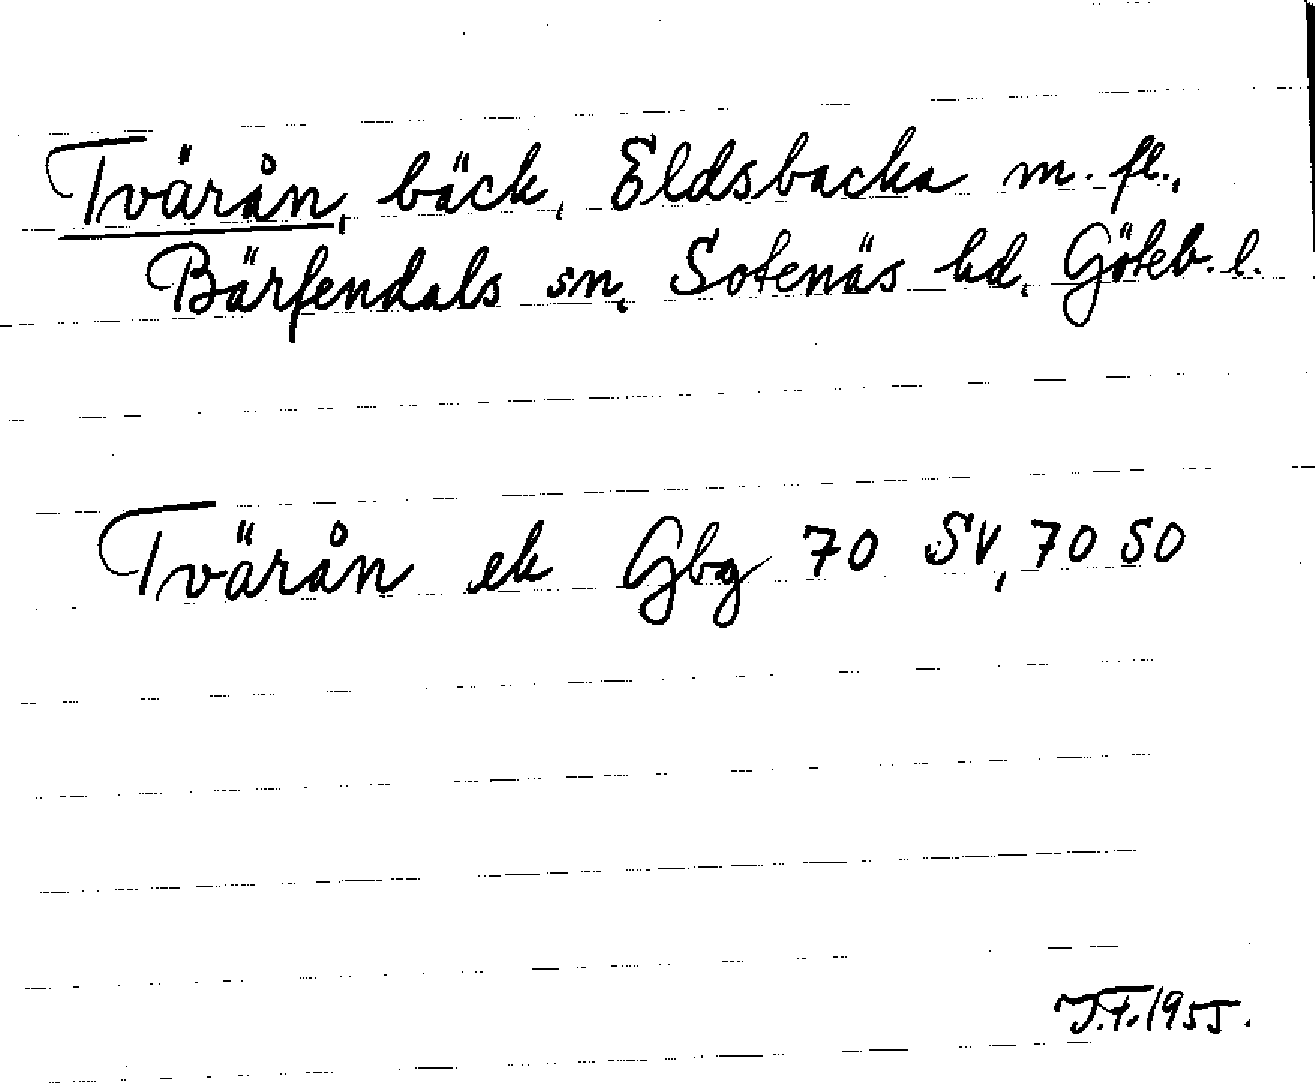 Tvärån, bäck, Eldsbacka m. fl.,
Bärfendals sn, Sotenäs hd, Göteb. l.
Tvärån ek Gbg 70 SV, 70 SO
J.F. 1955.